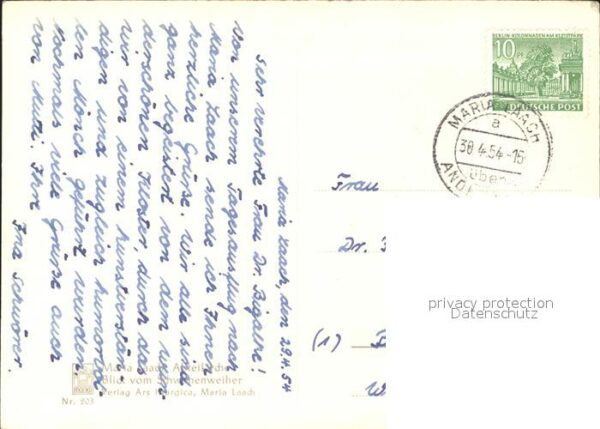 Maria Laach, den 29.4.54
Sehr verehrte Frau Dr. Bigalke!
Von unserem Tagesausflug nach
Maria Laach sende ich Ihnen
herzliche Grüsse. Wir alle sind
ganz begeistert von dem wun-
derschönen Kloster, durch das
wir von einem kunstverstän-
digen und zugleich humorvol-
len Mönch geführt wurden.
Nochmals viele Grüsse auch
von Mutti. Ihre
Ina Schwörer.
BERLIN · KOLONNADEN AM KLEISTPARK
10
DEUTSCHE POST
MARIA LAACH
a
30.4.54-15
über
Frau
Dr.
(1)
privacy protection
Datenschutz
Maria Laach, Abteikirche
Blick vom Schwanenweiher
Verlag Ars liturgica, Maria Laach
Nr. 203